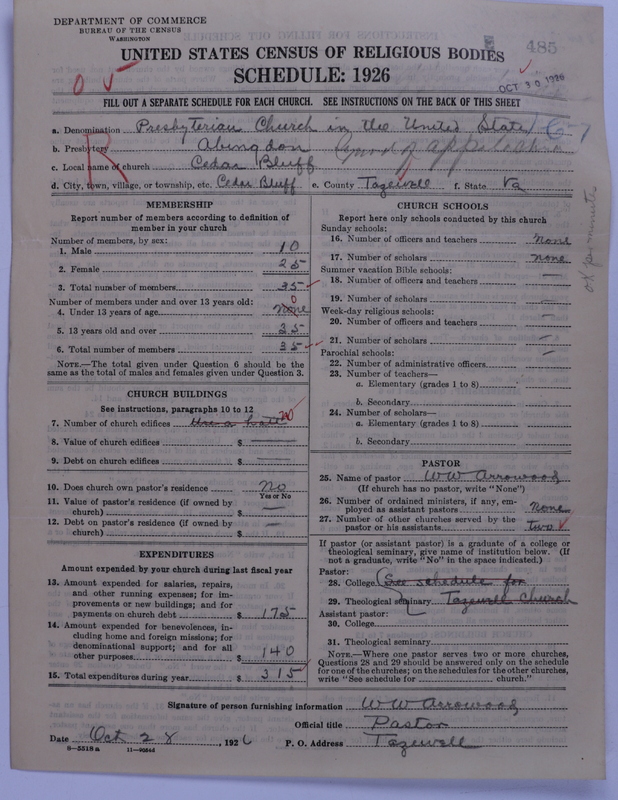 DEPARTMENT OF COMMERCE
BUREAU OF THE CENSUS
WASHINGTON
UNITED STATES CENSUS OF RELIGIOUS BODIES
485
SCHEDULE: 1926
OCT 30 1926
FILL OUT A SEPARATE SCHEDULE FOR EACH CHURCH. SEE INSTRUCTIONS ON THE BACK OF THIS SHEET
a. Denomination Presbyterian Church in the United States 67
b. Presbytery Abingdon (Synod of Appalachia
c. Local name of church Cedar Bluff
d. City, town, village, or township, etc. Cedar Bluff e. County Tazewell f. State Va
R
MEMBERSHIP
Report number of members according to definition of
member in your church
Number of members, by sex:
1. Male 10
2. Female 25
3. Total number of members 35
Number of members under and over 13 years old:
4. Under 13 years of age none 0
5. 13 years old and over 35
6. Total number of members 35
NOTE.—The total given under Question 6 should be
same as the total of males and females given under Question 3.
CHURCH BUILDINGS
See instructions, paragraphs 10 to 12
7. Number of church edifices Use a hall no
8. Value of church edifices $
9. Debt on church edifices $
10. Does church own pastor's residence No
Yes or No
11. Value of pastor's residence (if owned by
church) $ —
12. Debt on pastor's residence (if owned by
church) $ —
EXPENDITURES
Amount expended by your church during last fiscal year
13. Amount expended for salaries, repairs,
and other running expenses; for im-
provements or new buildings; and for
payments on church debt $ 175
14. Amount expended for benevolences, in-
cluding home and foreign missions; for
denominational support; and for all
other purposes $ 140
15. Total expenditures during year $ 315
CHURCH SCHOOLS
Report here only schools conducted by this church
Sunday schools:
16. Number of officers and teachers None
17. Number of scholars none
Summer vacation Bible schools:
18. Number of officers and teachers —
19. Number of scholars —
Week-day religious schools:
20. Number of officers and teachers —
21. Number of scholars —
Parochial schools:
22. Number of administrative officers
23. Number of teachers—
a. Elementary (grades 1 to 8)
b. Secondary
24. Number of scholars—
a. Elementary (grades 1 to 8)
b. Secondary
ok per minutes
PASTOR
25. Name of pastor W W Arrowood
(If church has no pastor, write "None")
26. Number of ordained ministers, if any, em-
ployed as assistant pastors None
27. Number of other churches served by the
pastor or his assistants two
If pastor (or assistant pastor) is a graduate of a college or
theological seminary, give name of institution below. (If
not a graduate, write "No" in the space indicated.)
Pastor:
28. College See schedule for
29. Theological seminary Tazewell Church
Assistant pastor:
30. College
31. Theological seminary
NOTE.—Where one pastor serves two or more churches,
Questions 28 and 29 should be answered only on the schedule
for one of the churches; on the schedules for the other churches,
write "See schedule for church."
Signature of person furnishing information W W Arrowood
Official title Pastor
Date Oct 28, 1926 P. O. Address Tazewell